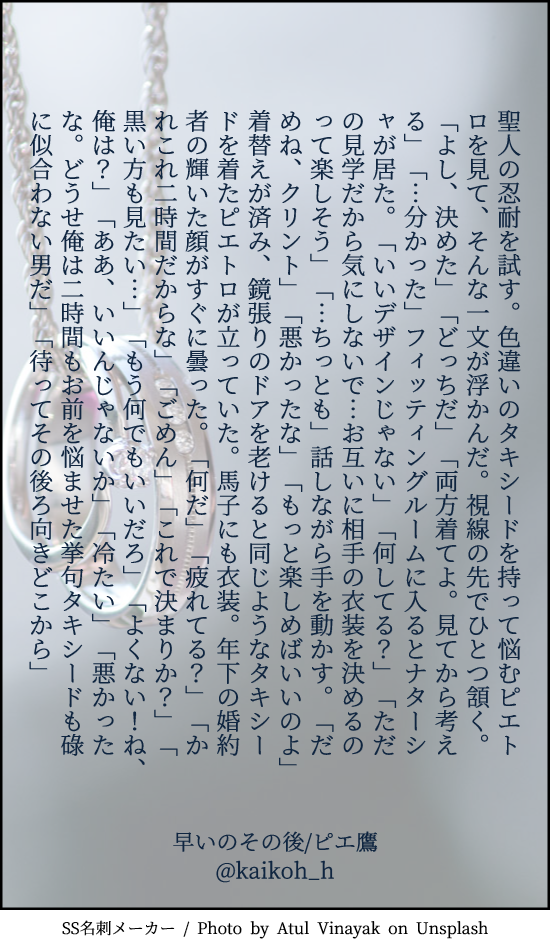 聖人の忍耐を試す。色違いのタキシードを持って悩むピエト
ロを見て、そんな一文が浮かんだ。視線の先でひとつ頷く。
「よし、決めた」「どっちだ」「両方着てよ。見てから考え
る」「…分かった」フィッティングルームに入るとナターシ
ャが居た。「いいデザインじゃない」「何してる?」「ただ
の見学だから気にしないで…お互いに相手の衣装を決めるの
って楽しそう」「…ちっとも」話しながら手を動かす。「だ
めね、クリント」「悪かったな」「もっと楽しめばいいのよ」
着替えが済み、鏡張りのドアを老けると同じようなタキシー
ドを着たピエトロが立っていた。馬子にも衣装。年下の婚約
者の輝いた顔がすぐに曇った。「何だ」「疲れてる?」「か
れこれ二時間だからな」「ごめん」「これで決まりか?」「
黒い方も見たい…」「もう何でもいいだろ」「よくない!ね、
俺は?」「ああ、いいんじゃないか」「冷たい」「悪かった
な。どうせ俺は二時間もお前を悩ませた挙句タキシードも碌
に似合わない男だ」「待ってその後ろ向きどこから」
早いのその後/ピエ鷹
@kaikoh_h
SS名刺メーカー / Photo by Atul Vinayak on Unsplash